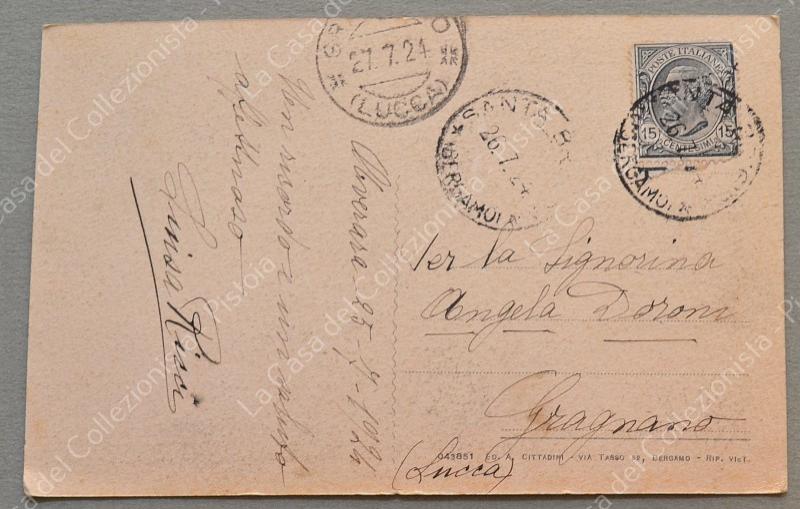 27.7.24
(LUCCA)
SANTA B
26.7.24
(BERGAMO)
POSTE ITALIANE
15 15
CENTESIMI
(BERGAMO)
25-7-1924
Un ricordo e un saluto
affettuoso
Luisa Ricci
Per la Signorina
Angela Doroni
Gragnano
(Lucca)
043851 ED. A. CITTADINI - VIA TASSO 92, BERGAMO - RIP. VIET.
La Casa del Collezionista - Pistoia